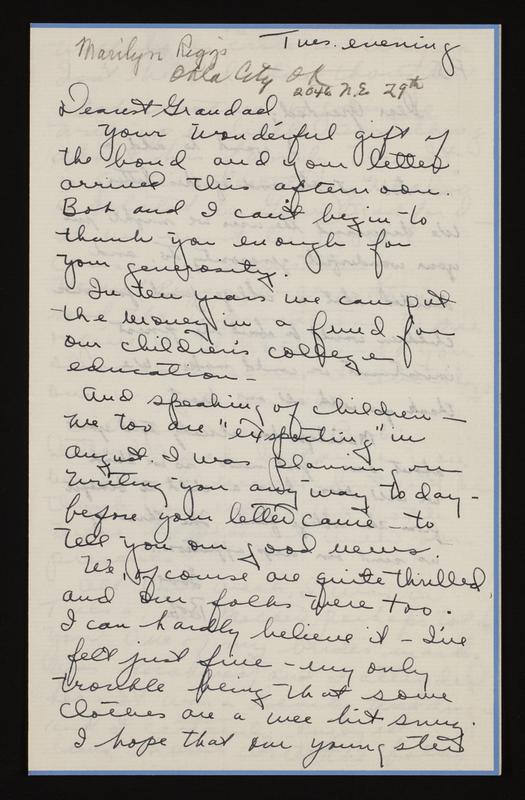 Marilyn Riggs
Tues. evening
Okla City OK
2046 N.E. 29th
Dearest Grandad
Your wonderful gift of
the bond and your letter
arrived this afternoon.
Bob and I can't begin to
thank you enough for
your generosity.
In ten years we can put
the money in a fund for
our children's college
education -
And speaking of children -
we too are "expecting" in
August. I was planning on
writing you any way today -
before your letter came - to
tell you our good news.
We, of course are quite thrilled,
and our folks were too.
I can hardly believe it - I've
felt just fine - my only
trouble being that some
clothes are a wee bit snug.
I hope that our youngster